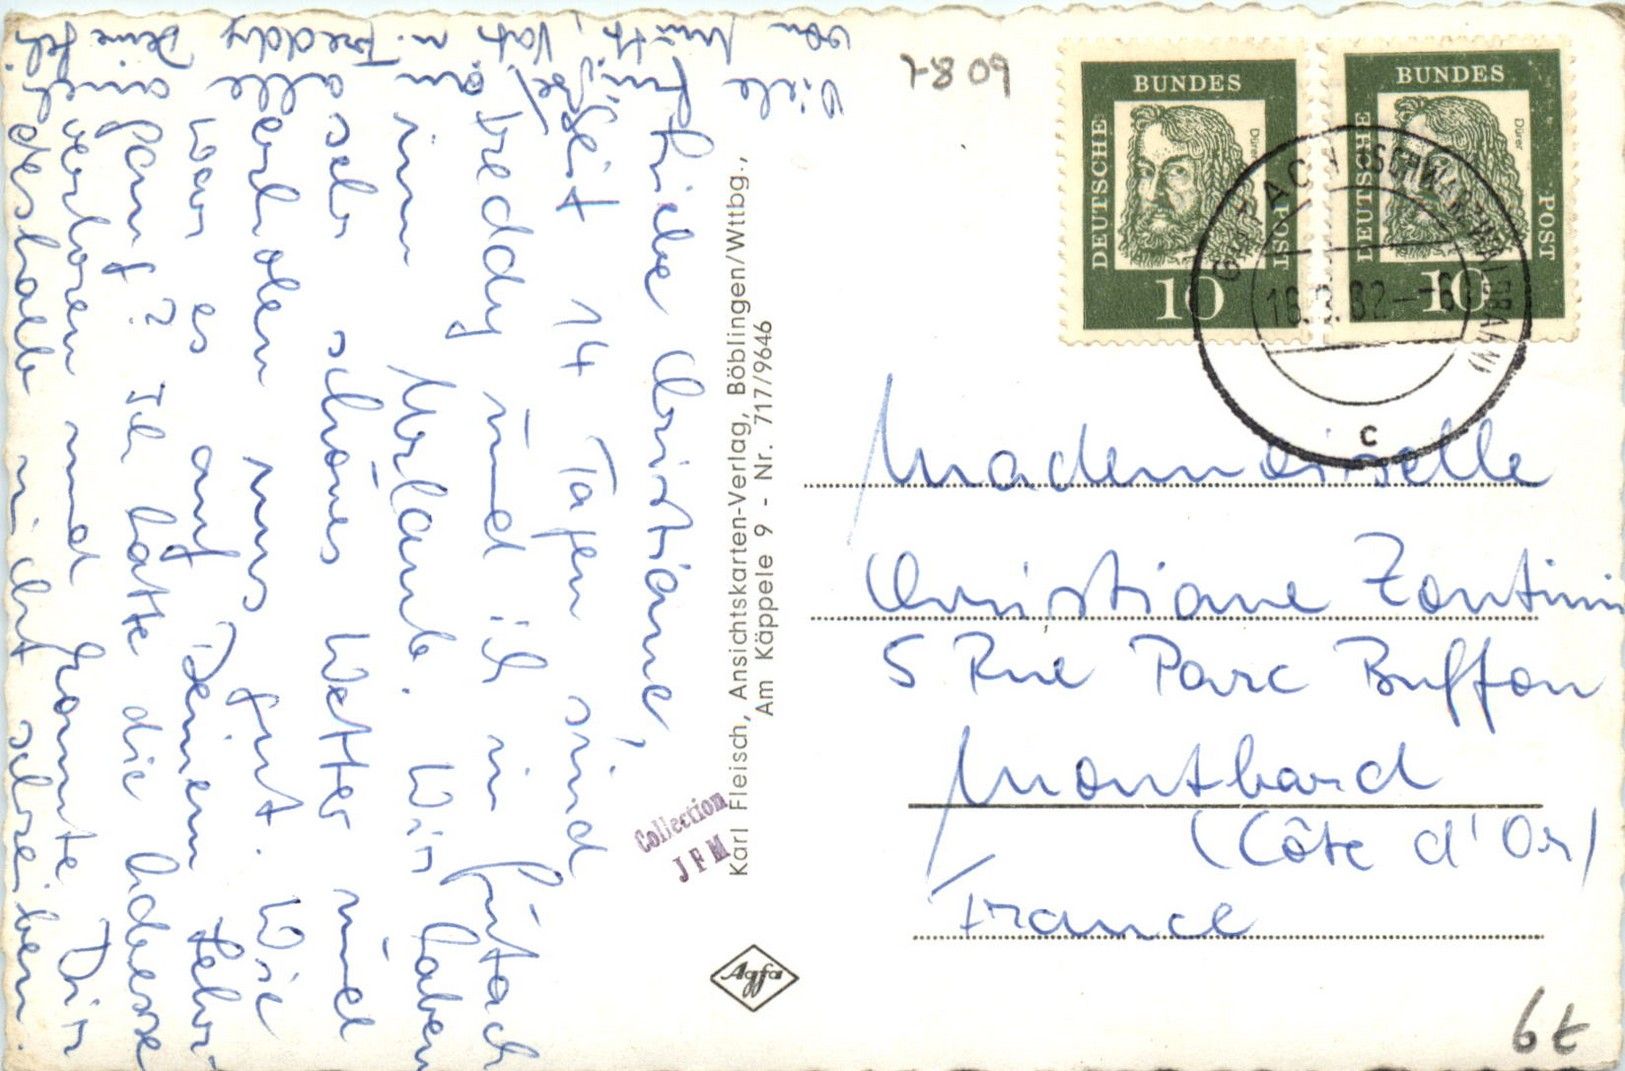 Liebe Christiane,
Seit 14 Tagen sind
Freddy und ich in Gütach
im Urlaub. Wir haben
sehr schönes Wetter und
erholen uns gut. Wie
war es auf Deinem Fahr-
Ich hatte die Adresse
verloren und konnte Dir
deshalb nicht schreiben.
Viele Grüße
von Mutti, Vati u. Freddy
an alle
auch
Karl Fleisch, Ansichtskarten-Verlag, Böblingen/Wttbg.,
Am Käppele 9 - Nr. 717/9646
Collection
J F M
Agfa
1809
DEUTSCHE BUNDES POST
Dürer
10
DEUTSCHE BUNDES POST
Dürer
10
GUTACH (SCHWARZWALDBAHN)
c
Mademoiselle
Christiane Zontini
5 Rue Parc Buffon
Montbard
(Côte d'Or)
France
6t